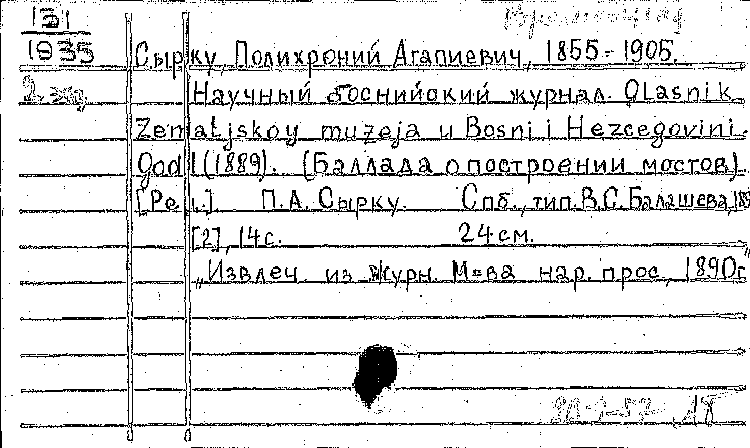 131
1935
2 экз
Сырку, Полихроний Агапиевич, 1855-1905.
Научный боснийский журнал. Glasnik
Zemaljskoy muzeja u Bosni i Hezcegovini.
God I (1889). (Баллада о построении мостов).
[Рец.] П.А. Сырку. Спб., тип. В.С. Балашева, 189
[2], 14 с. 24 см.
„Извлеч. из журн. М=ва нар. прос., 1890г."